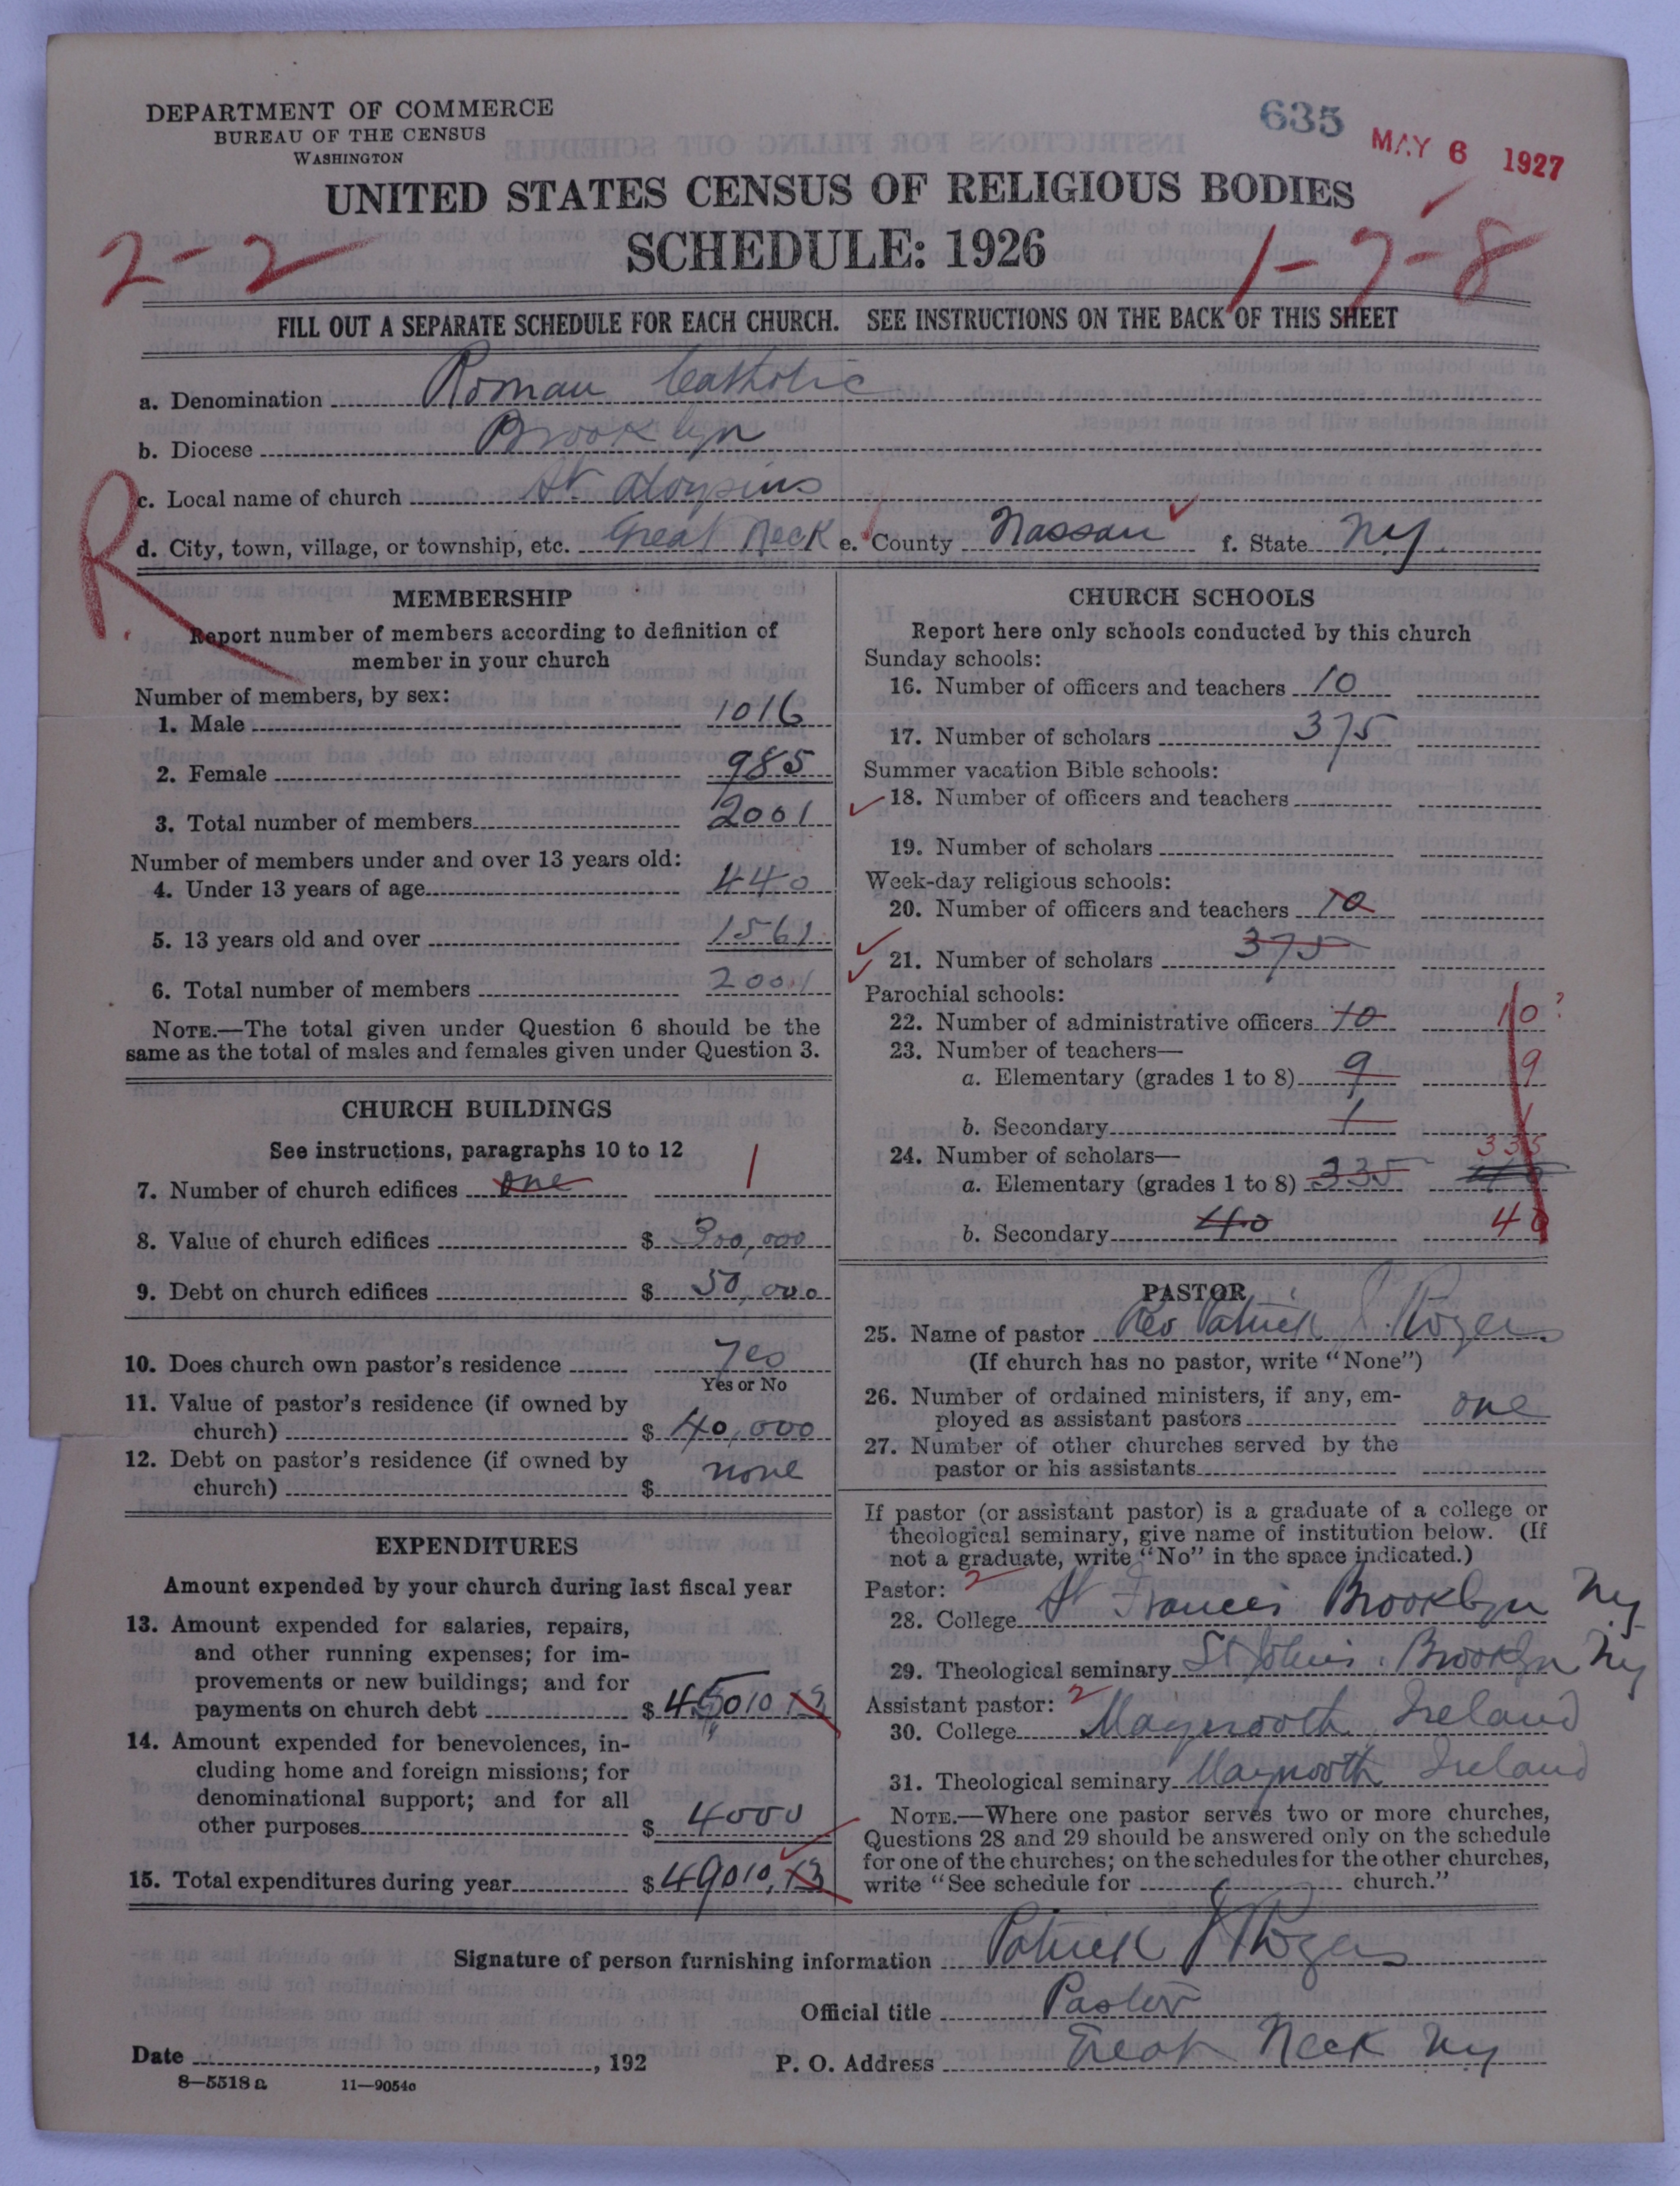 DEPARTMENT OF COMMERCE
BUREAU OF THE CENSUS
WASHINGTON
635 MAY 6 1927
UNITED STATES CENSUS OF RELIGIOUS BODIES
SCHEDULE: 1926
2-2 1-7-8
FILL OUT A SEPARATE SCHEDULE FOR EACH CHURCH. SEE INSTRUCTIONS ON THE BACK OF THIS SHEET
a. Denomination Roman Catholic
b. Diocese Brooklyn
c. Local name of church St Aloysius
d. City, town, village, or township, etc. Great Neck e. County Nassau f. State NY.
R
MEMBERSHIP
Report number of members according to definition of
member in your church
Number of members, by sex:
1. Male 1016
2. Female 985
3. Total number of members 2001
Number of members under and over 13 years old:
4. Under 13 years of age 440
5. 13 years old and over 1561
6. Total number of members 2001
NOTE.—The total given under Question 6 should be the
same as the total of males and females given under Question 3.
CHURCH BUILDINGS
See instructions, paragraphs 10 to 12
7. Number of church edifices one 1
8. Value of church edifices $ 300,000
9. Debt on church edifices $ 50,000
10. Does church own pastor's residence Yes
Yes or No
11. Value of pastor's residence (if owned by
church) $ 40,000
12. Debt on pastor's residence (if owned by
church) $ none
EXPENDITURES
Amount expended by your church during last fiscal year
13. Amount expended for salaries, repairs,
and other running expenses; for im-
provements or new buildings; and for
payments on church debt $ 45010 13
14. Amount expended for benevolences, in-
cluding home and foreign missions; for
denominational support; and for all
other purposes $ 4000
15. Total expenditures during year $ 49010.13
CHURCH SCHOOLS
Report here only schools conducted by this church
Sunday schools:
16. Number of officers and teachers 10
17. Number of scholars 375
Summer vacation Bible schools:
18. Number of officers and teachers
19. Number of scholars
Week-day religious schools:
20. Number of officers and teachers 10
21. Number of scholars 375
Parochial schools:
22. Number of administrative officers 10 10?
23. Number of teachers—
a. Elementary (grades 1 to 8) 9 9
b. Secondary 1 1
24. Number of scholars— 335
a. Elementary (grades 1 to 8) 335
b. Secondary 40 40
PASTOR
25. Name of pastor Rev Patrick J Rogers
(If church has no pastor, write "None")
26. Number of ordained ministers, if any, em-
ployed as assistant pastors one
27. Number of other churches served by the
pastor or his assistants
If pastor (or assistant pastor) is a graduate of a college or
theological seminary, give name of institution below. (If
not a graduate, write "No" in the space indicated.)
Pastor: 2
28. College St Francis Brooklyn Ny
29. Theological seminary St Johns. Brooklyn Ny
Assistant pastor: 2
30. College Maynooth Ireland
31. Theological seminary Maynooth Ireland
NOTE.—Where one pastor serves two or more churches,
Questions 28 and 29 should be answered only on the schedule
for one of the churches; on the schedules for the other churches,
write "See schedule for church."
Signature of person furnishing information Patrick J Rogers
Official title Pastor
Date , 192 P. O. Address Great Neck Ny
8—5518 a 11—9054c